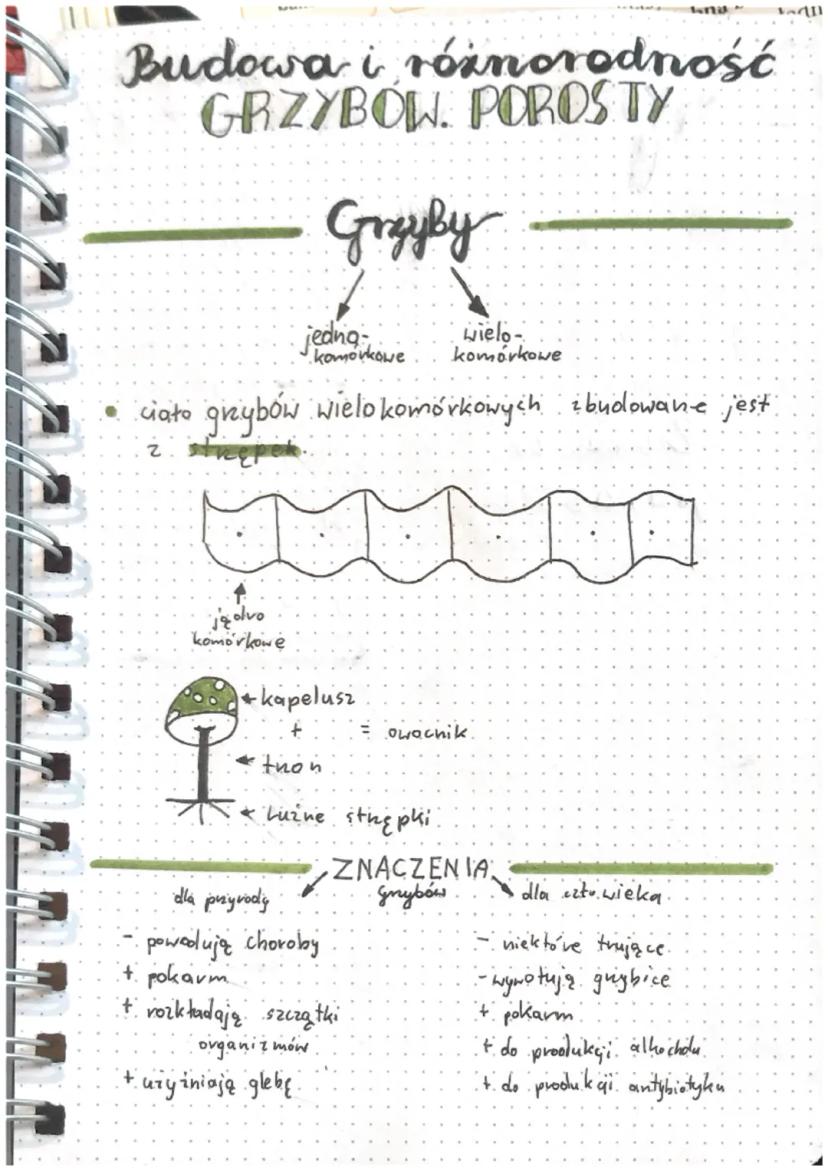 Budowa i różnorodność
GRZYBÓW. POROSTY
Grzyby
jedno-
komórkowe
wielo-
komórkowe
• ciało grzybów wielokomórkowych zbudowane jest
z strzępek.
jądro
komórkowe
kapelusz
+ = owocnik
trzon
luźne strzępki
ZNACZENIA
grzybów
dla przyrody
- powodują choroby
+ pokarm
+ rozkładają szczątki
organizmów
+ użyźniają glebę
dla człowieka
- niektóre trujące
- wywołują grzybice
+ pokarm
+ do produkcji alkoholu
+ do produkcji antybiotyku